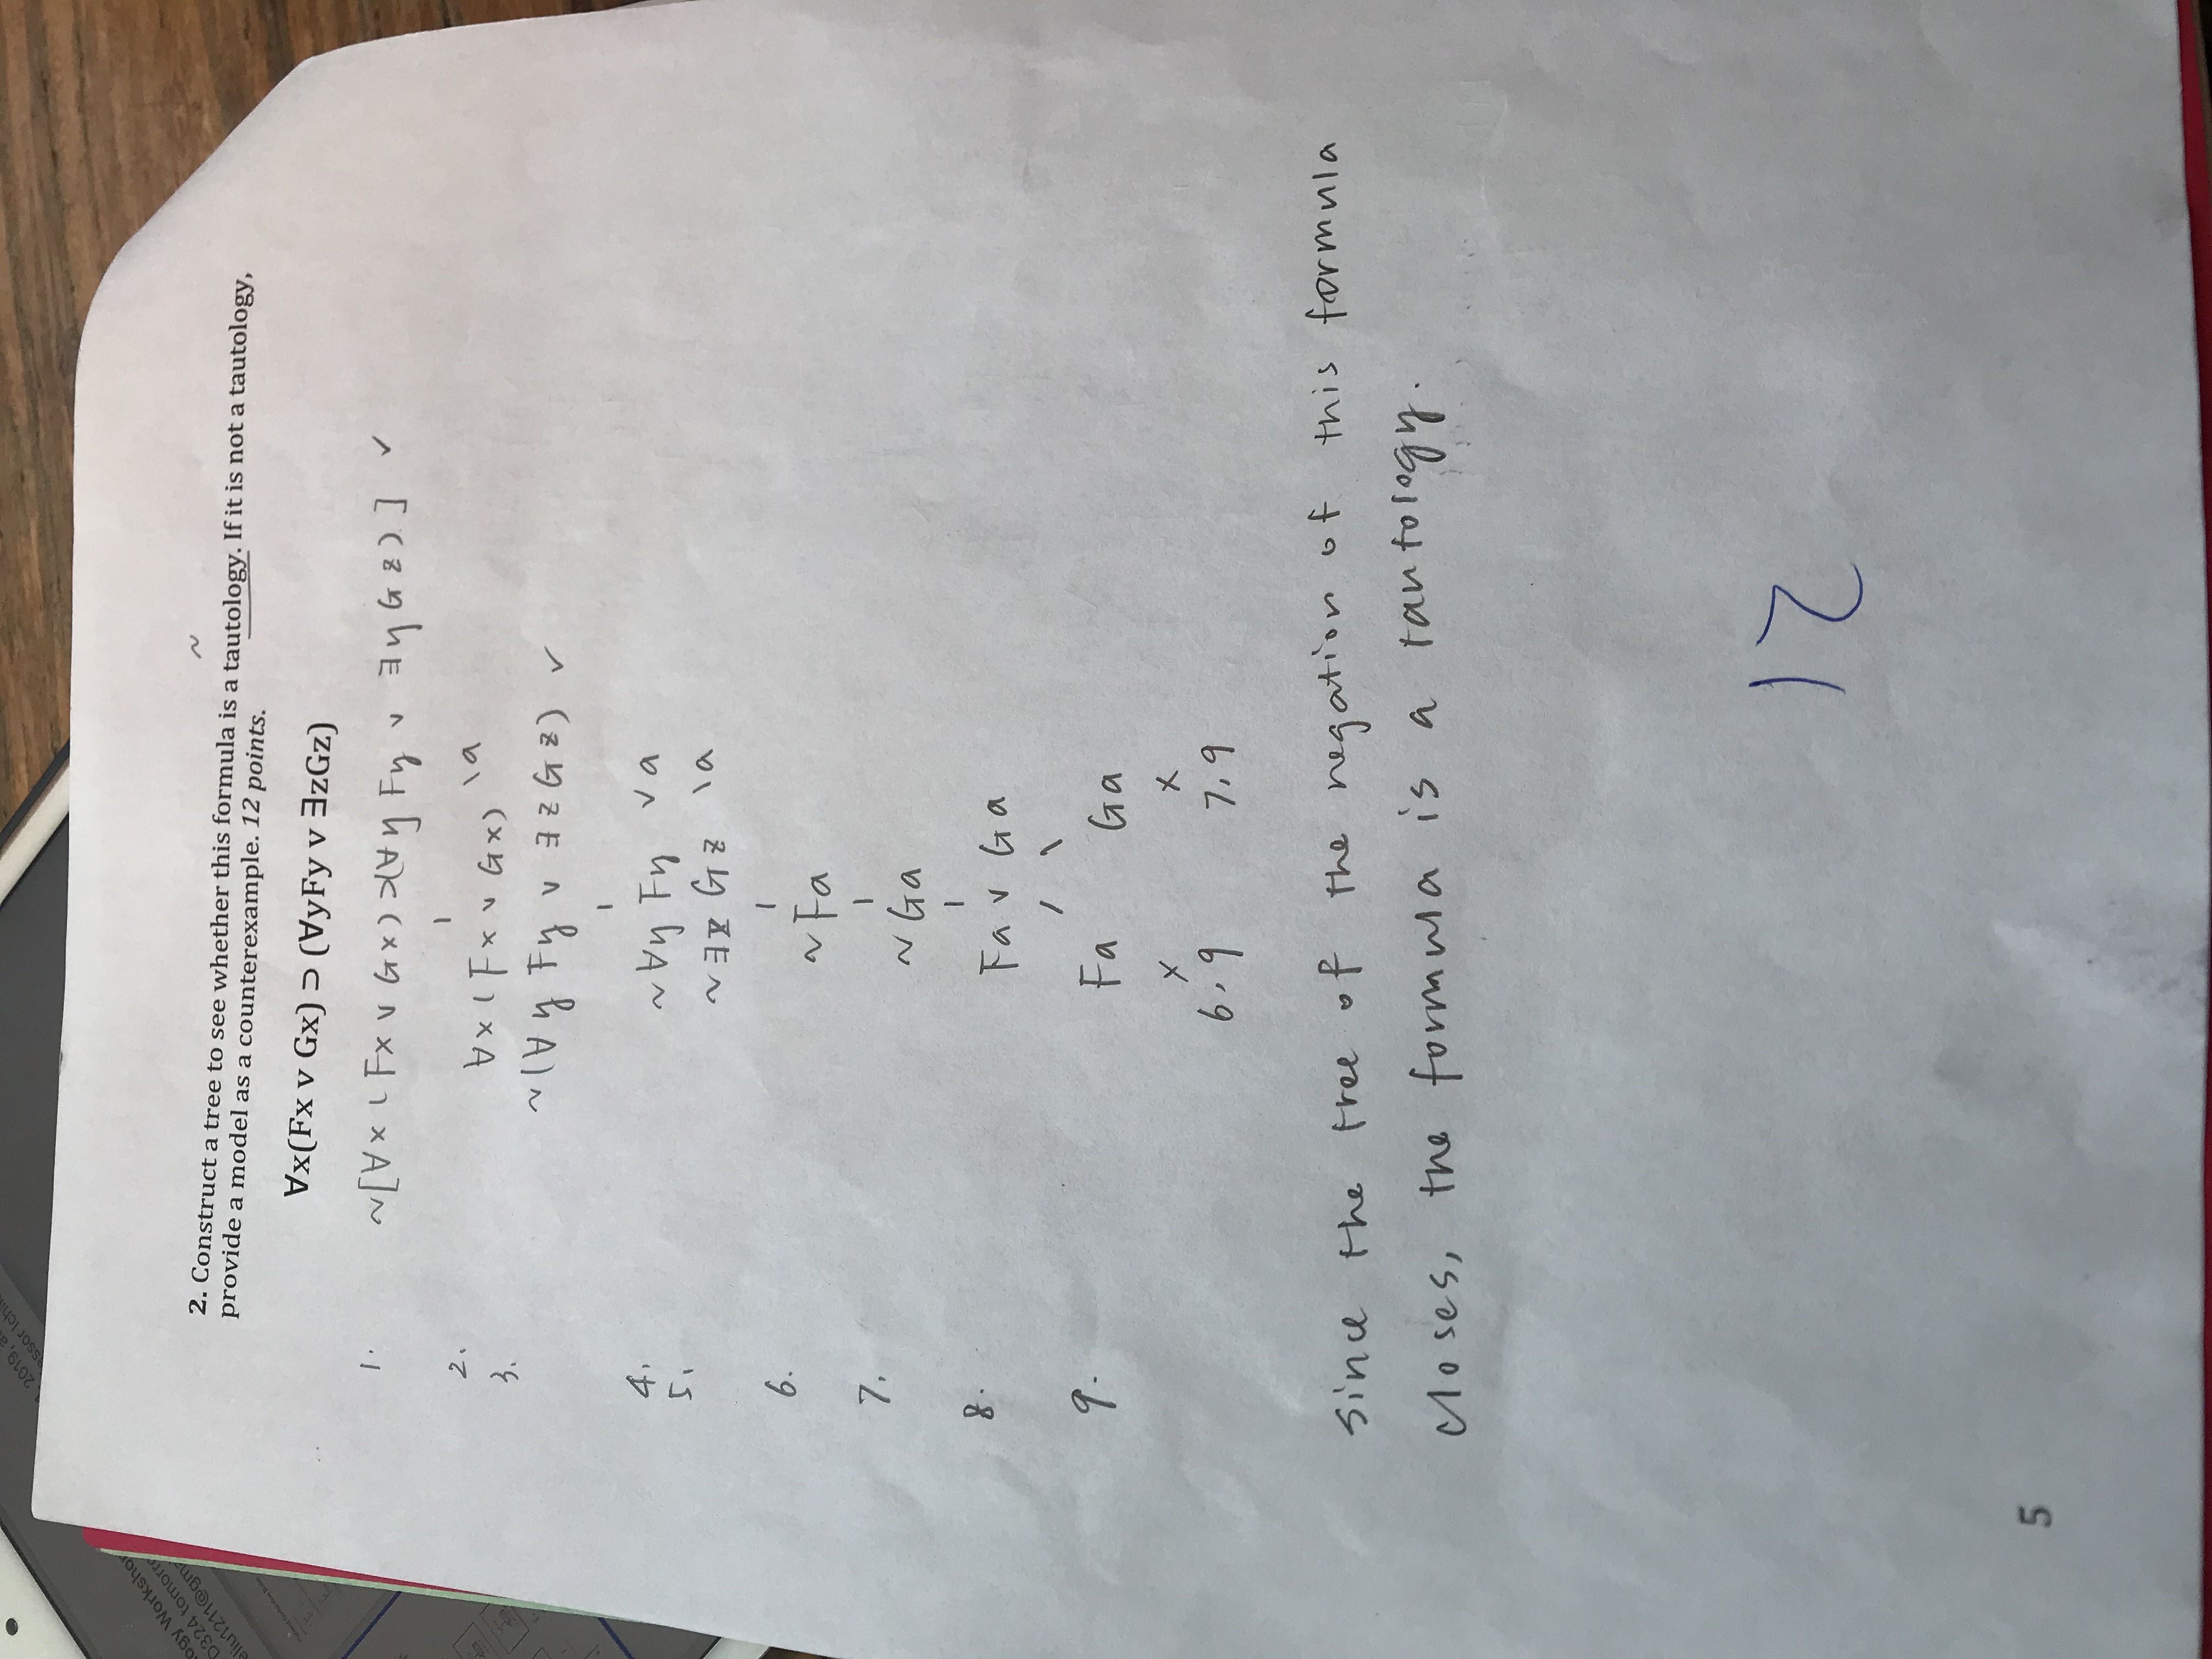 2. Construct a tree to see whether this formula is a tautology. If it is not a tautology,
provide a model as a counterexample. 12 points.
~
∀x(Fx ∨ Gx) ⊃ (∀yFy ∨ ∃zGz)
1. ~[∀x(Fx ∨ Gx) ⊃ (∀yFy ∨ ∃yGz)] ✓
2. ∀x(Fx ∨ Gx) \a
3. ~(∀yFy ∨ ∃zGz) ✓
4. ~∀yFy ✓a
5. ~∃zGz \a
6. ~Fa
7. ~Ga
8. Fa ∨ Ga
9. Fa Ga
x x
6,9 7,9
Since the tree of the negation of this formula
closes, the formula is a tautology.
12
5